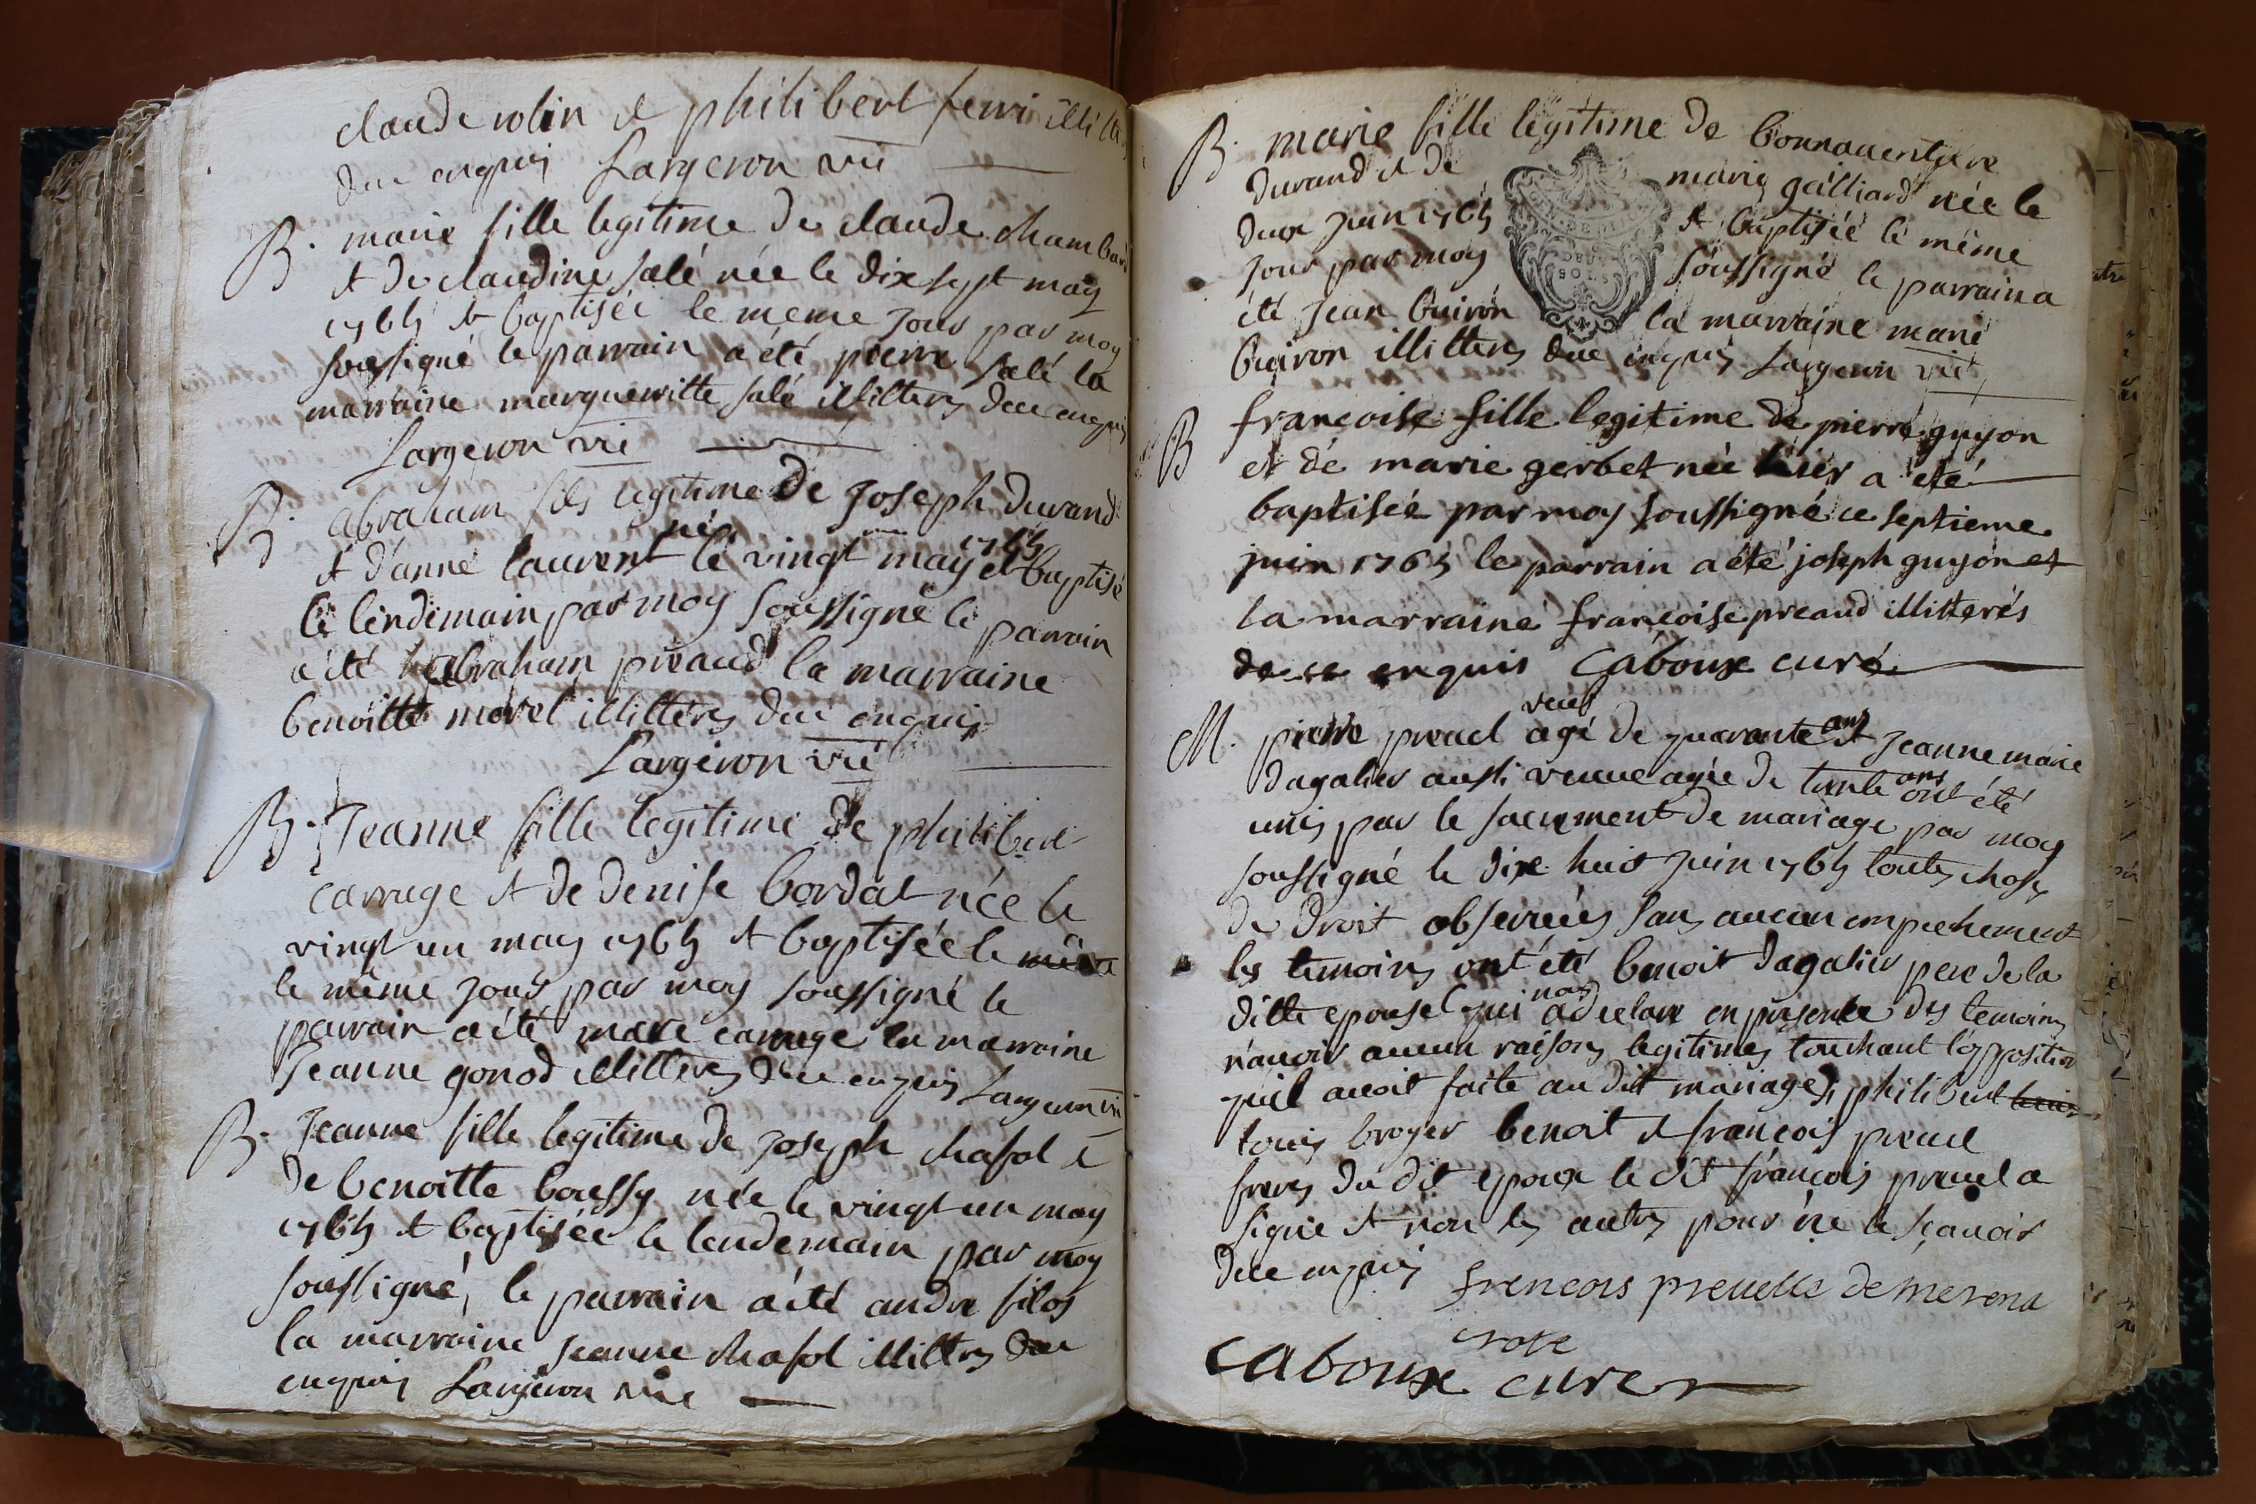 claude robin et philibert ferri
de ce enquis Largeron vic
B. marie fille legitime de claude chambard
et de claudine salé née le dix sept may
1765 et baptisée le meme jour par moy
soussigné le parrain a été pierre salé la
marraine margueritte salé illitterés de ce enquis
Largeron vic
B. abraham fils legitime de Joseph durand
et d'anne laurent né le vingt may 1765 et baptisé
le lendemain par moy soussigné le parrain
a été abraham preaud la marraine
benoitte morel illitterés de ce enquis
Largeron vic
B. Jeanne fille legitime de philibert
carruge et de denise bordat née le
vingt un may 1765 et baptisée le
le même jour par moy soussigné le
parrain a été marc carruge la marraine
Jeanne gonod illitterés de ce enquis Largeron vic
B. Jeanne fille legitime de Joseph chasol et
de benoitte boussy née le vingt un may
1765 et baptisée le lendemain par moy
soussigné, le parrain a été andre silos
la marraine Jeanne chasol illitterés de ce
enquis Largeron vic
B. marie fille legitime de bonnaventure
durand et de marie galliard née le
deux Juin 1765 et baptisée le même
jour par moy soussigné le parrain a
été Jean buiron la marraine marie
buiron illitterés de ce enquis Largeron vic
B françoise fille legitime de pierre guyon
et de marie gerbet née hier a été
baptisée par moy soussigné ce septieme
juin 1765 le parrain a été joseph guyon et
la marraine françoise preaud illitterés
de ce enquis Caboux curé
M. pierre preuel veuf agé de quarante ans et Jeanne marie
dagalier aussi veuve agée de trente ans ont été
unis par le sacrement de mariage par moy
soussigné le dix huit Juin 1765 toutes choses
de droit observées sans aucun empechement
les temoins ont été benoit dagalier pere de la
ditte epouse qui nous a declaré en presence des temoins
n'avoir aucun raisons legitimes touchant l'opposition
qu'il avoit faite au dit mariage, philibert
louis broyer benoit et françois preuel
freres du dit epoux le dit françois preuel a
signé et non les autres pour ne le sçavoir
de ce enquis frencois preuelle de merena
Caboux curé